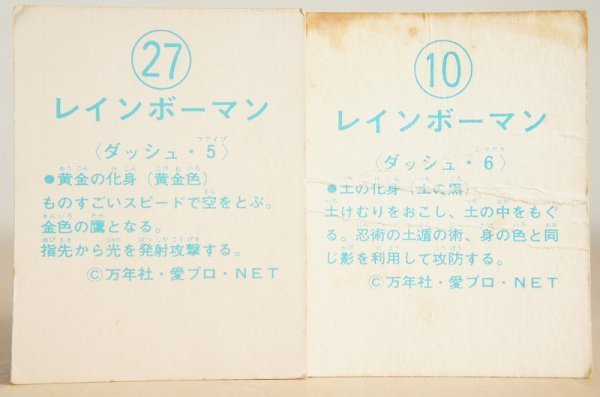 27
レインボーマン
〈ダッシュ・5〉
●黄金の化身(黄金色)
ものすごいスピードで空をとぶ。
金色の鷹となる。
指先から光を発射攻撃する。
©万年社・愛プロ・NET
10
レインボーマン
〈ダッシュ・6〉
●土の化身(土の黒)
土けむりをおこし、土の中をもぐ
る。忍術の土遁の術、身の色と同
じ影を利用して攻防する。
©万年社・愛プロ・NET